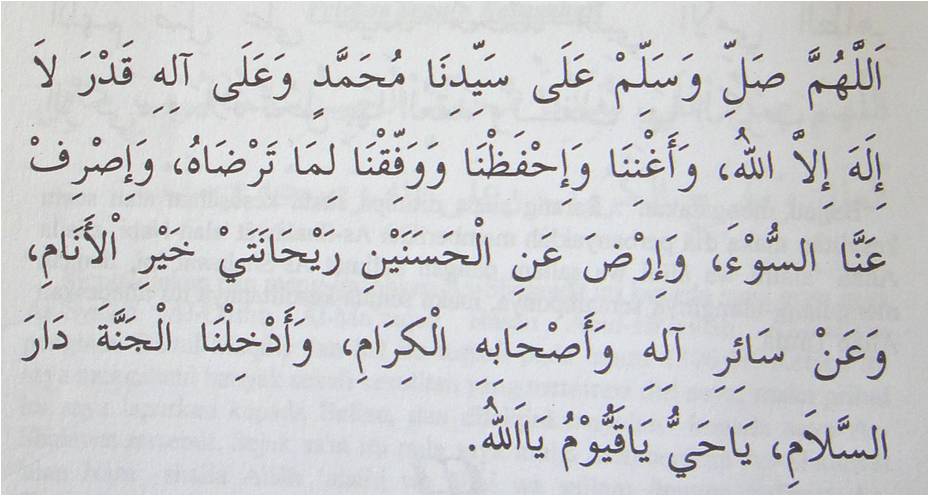 اَللَّهُمَّ صَلِّ وَسَلِّمْ عَلَى سَيِّدِنَا مُحَمَّدٍ وَعَلَى آلِهِ قَدْرَ لاَ
إِلَهَ إِلاَّ اللهُ، وَأَغْنِنَا وَإِحْفَظْنَا وَوَفِّقْنَا لِمَا تَرْضَاهُ، وَإِصْرِفْ
عَنَّا السُّوْءَ، وَإِرْضَ عَنِ الْحَسَنَيْنِ رَيْحَانَتَيْ خَيْرِ اْلأَنَامِ،
وَعَنْ سَائِرِ آلِهِ وَأَصْحَابِهِ الْكِرَامِ، وَأَدْخِلْنَا الْجَنَّةَ دَارَ
السَّلاَمِ، يَاحَيُّ يَاقَيُّوْمُ يَااللهُ.